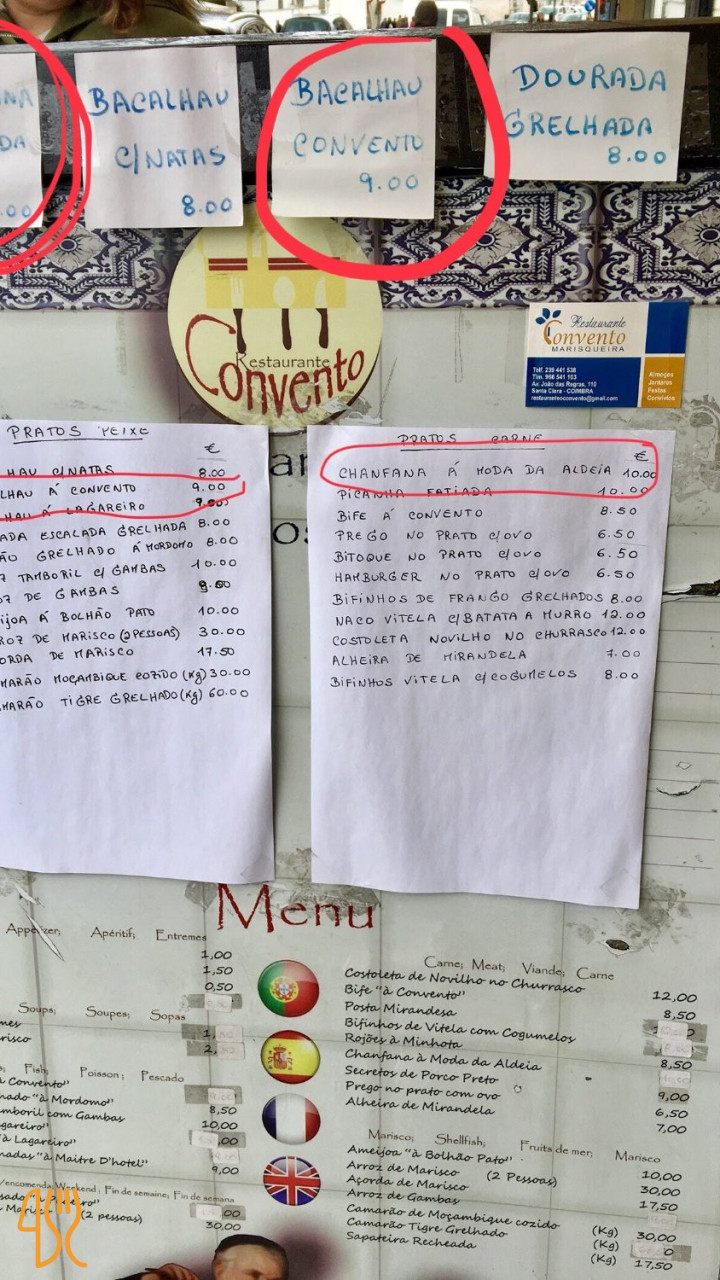 BACALHAU
C/NATAS
8.00
BACALHAU
CONVENTO
9.00
DOURADA
GRELHADA
8.00
Restaurante
Convento
Restaurante
Convento
MARISQUEIRA
Telf. 239 441 538
Tlm. 966 541 103
Av. João das Regras, 112
Santa Clara - COIMBRA
restauranteoconvento@gmail.com
Almoços
Jantares
Festas
Convívios
PRATOS PEIXE
€
C/NATAS 8.00
Á CONVENTO 9.00
Á LAGAREIRO 9.00
ESCALADA GRELHADA 8.00
GRELHADO Á MORDOMO 8.00
TAMBORIL C/ GAMBAS 10.00
DE GAMBAS
Á BOLHÃO PATO 10.00
DE MARISCO (2 PESSOAS) 30.00
DE MARISCO 17.50
MOÇAMBIQUE COZIDO (Kg) 30.00
TIGRE GRELHADO (Kg) 60.00
PRATOS CARNE
€
CHANFANA Á MODA DA ALDEIA 10.00
PICANHA FATIADA 10.00
BIFE Á CONVENTO 8.50
PREGO NO PRATO C/OVO 6.50
BITOQUE NO PRATO C/OVO 6.50
HAMBURGER NO PRATO C/OVO 6.50
BIFINHOS DE FRANGO GRELHADOS 8.00
NACO VITELA C/BATATA A MURRO 12.00
COSTOLETA NOVILHO NO CHURRASCO 12.00
ALHEIRA DE MIRANDELA 7.00
BIFINHOS VITELA C/COGUMELOS 8.00
Menu
Apéritif; Entremes
1,00
1,50
0,50
Soups; Soupes; Sopas
Fish; Poisson; Pescado
Convento"
"à Mordomo" 8,50
com Gambas 10,00
"à Lagareiro"
"à Maitre D'hotel" 9,00
Weekend; Fin de semaine; Fin de semana
(2 pessoas) 30,00
Carne; Meat; Viande; Carne
Costoleta de Novilho no Churrasco 12,00
Bife "à Convento" 8,50
Posta Mirandesa
Bifinhos de Vitela com Cogumelos
Rojões à Minhota 8,50
Chanfana à Moda da Aldeia
Secretos de Porco Preto 9,00
Prego no prato com ovo 6,50
Alheira de Mirandela 7,00
Marisco; Shellfish; Fruits de mer; Marisco
Ameijoa "à Bolhão Pato" 10,00
Arroz de Marisco (2 Pessoas) 30,00
Açorda de Marisco 17,50
Arroz de Gambas
Camarão de Moçambique cozido (Kg) 30,00
Camarão Tigre Grelhado (Kg)
Sapateira Recheada (Kg) 17,50